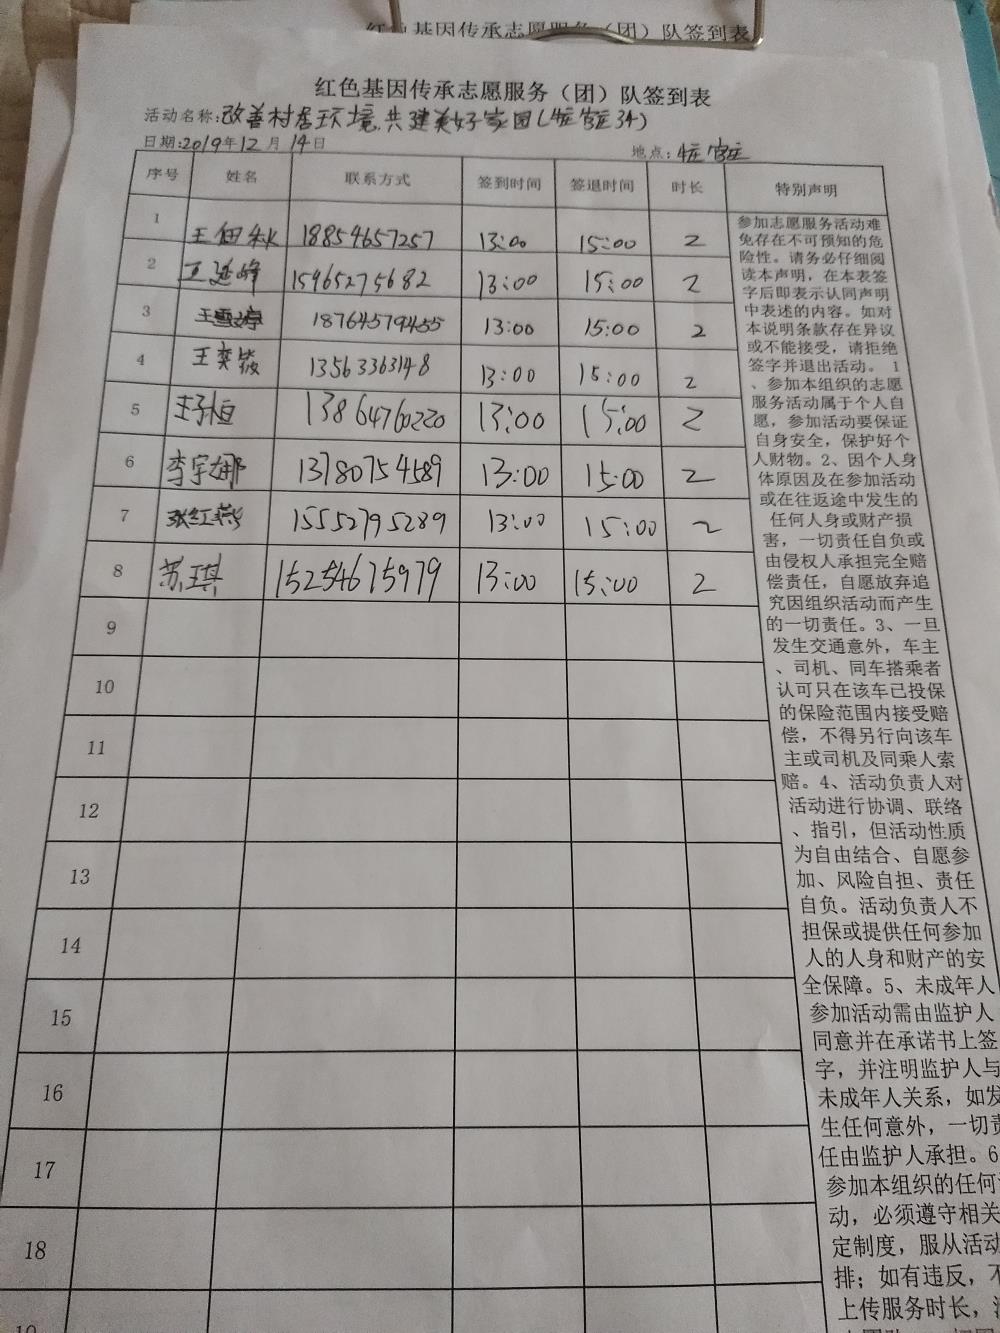 红色基因传承志愿服务（团）队签到表
红色基因传承志愿服务（团）队签到表
活动名称:改善村居环境,共建美好家园(牟官庄34)
日期:2019年12月14日 地点:牟官庄
序号 姓名 联系方式 签到时间 签退时间 时长 特别声明
1 王佃秋 18854657257 13:00 15:00 2
2 王延峰 15965275682 13:00 15:00 2
3 王雪婷 18764579455 13:00 15:00 2
4 王奕筱 13563363148 13:00 15:00 2
5 王子恒 13864760220 13:00 15:00 2
6 李宇娜 13780754589 13:00 15:00 2
7 张红燕 15552795289 13:00 15:00 2
8 苏琪 15254675979 13:00 15:00 2
9
10
11
12
13
14
15
16
17
18
19
参加志愿服务活动难
免存在不可预知的危
险性。请务必仔细阅
读本声明，在本表签
字后即表示认同声明
中表述的内容。如对
本说明条款存在异议
或不能接受，请拒绝
签字并退出活动。 1
、参加本组织的志愿
服务活动属于个人自
愿，参加活动要保证
自身安全，保护好个
人财物。2、因个人身
体原因及在参加活动
或在往返途中发生的
任何人身或财产损
害，一切责任自负或
由侵权人承担完全赔
偿责任，自愿放弃追
究因组织活动而产生
的一切责任。3、一旦
发生交通意外，车主
、司机、同车搭乘者
认可只在该车已投保
的保险范围内接受赔
偿，不得另行向该车
主或司机及同乘人索
赔。4、活动负责人对
活动进行协调、联络
、指引，但活动性质
为自由结合、自愿参
加、风险自担、责任
自负。活动负责人不
担保或提供任何参加
人的人身和财产的安
全保障。5、未成年人
参加活动需由监护人
同意并在承诺书上签
字，并注明监护人与
未成年人关系，如发
生任何意外，一切责
任由监护人承担。6
参加本组织的任何
动，必须遵守相关
定制度，服从活动
排；如有违反，不
上传服务时长，